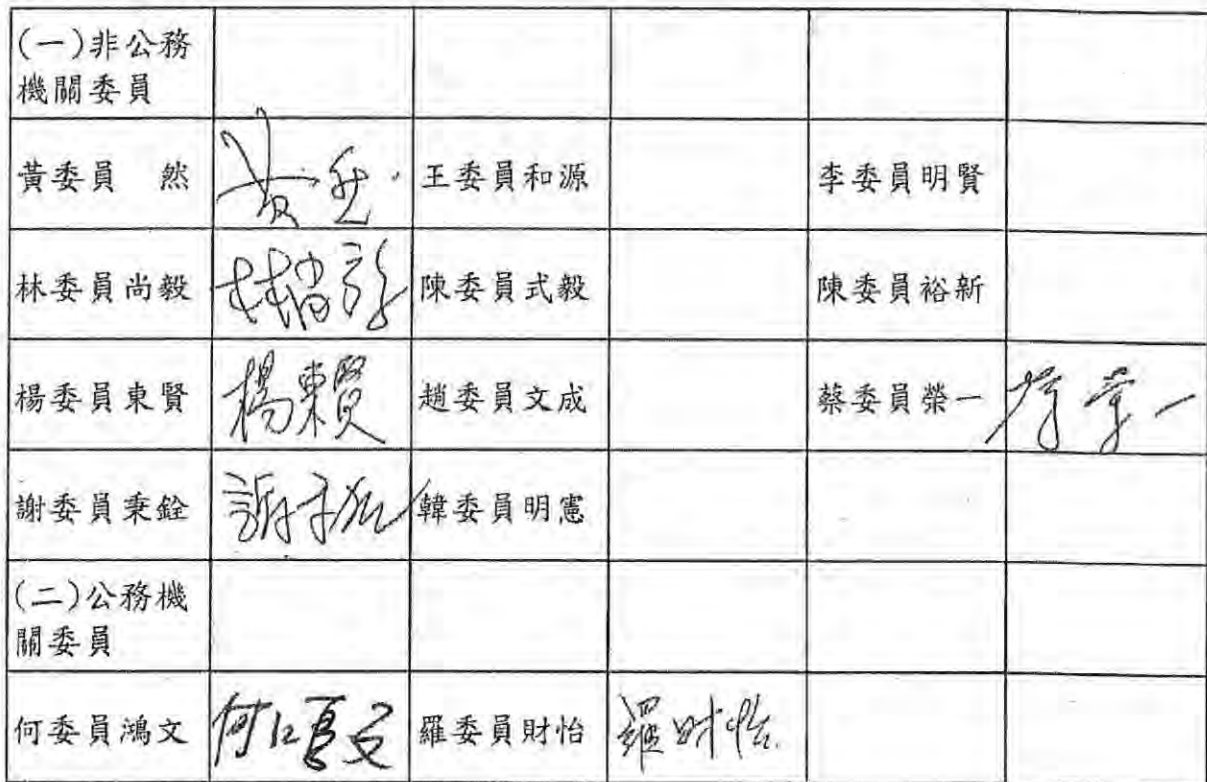 (一)非公務
機關委員
黃委員　然 黃然 王委員和源 李委員明賢
林委員尚毅 林尚毅 陳委員式毅 陳委員裕新
楊委員東賢 楊東賢 趙委員文成 蔡委員榮一 蔡榮一
謝委員秉銓 韓委員明憲
(二)公務機
關委員
何委員鴻文 何鴻文 羅委員財怡 羅財怡